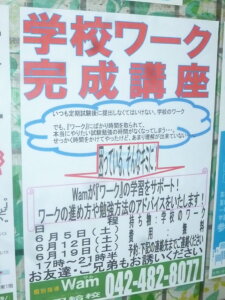 学校ワーク
完成講座
いつも定期試験後に提出しなくてはいけない、学校のワーク
でも、『ワーク』にばかり時間を取られて、
本当にやりたい試験勉強の時間がなくなってしまう…。
せっかく時間をかけてやったけど、あまり理解が出来ていない
困っている、そんなキミに
Wamが『ワーク』の学習をサポート!
ワークの進め方や勉強方法のアドバイスをいたします!
6月5日(土) 持ち物:学校のワーク
6月12日(土) 費用:無料
6月19日(土) 予約:下記の連絡先までご連絡ください
17時~21時半
お友達・ご兄弟もお誘いください
個別指導 Wam 042-482-8077